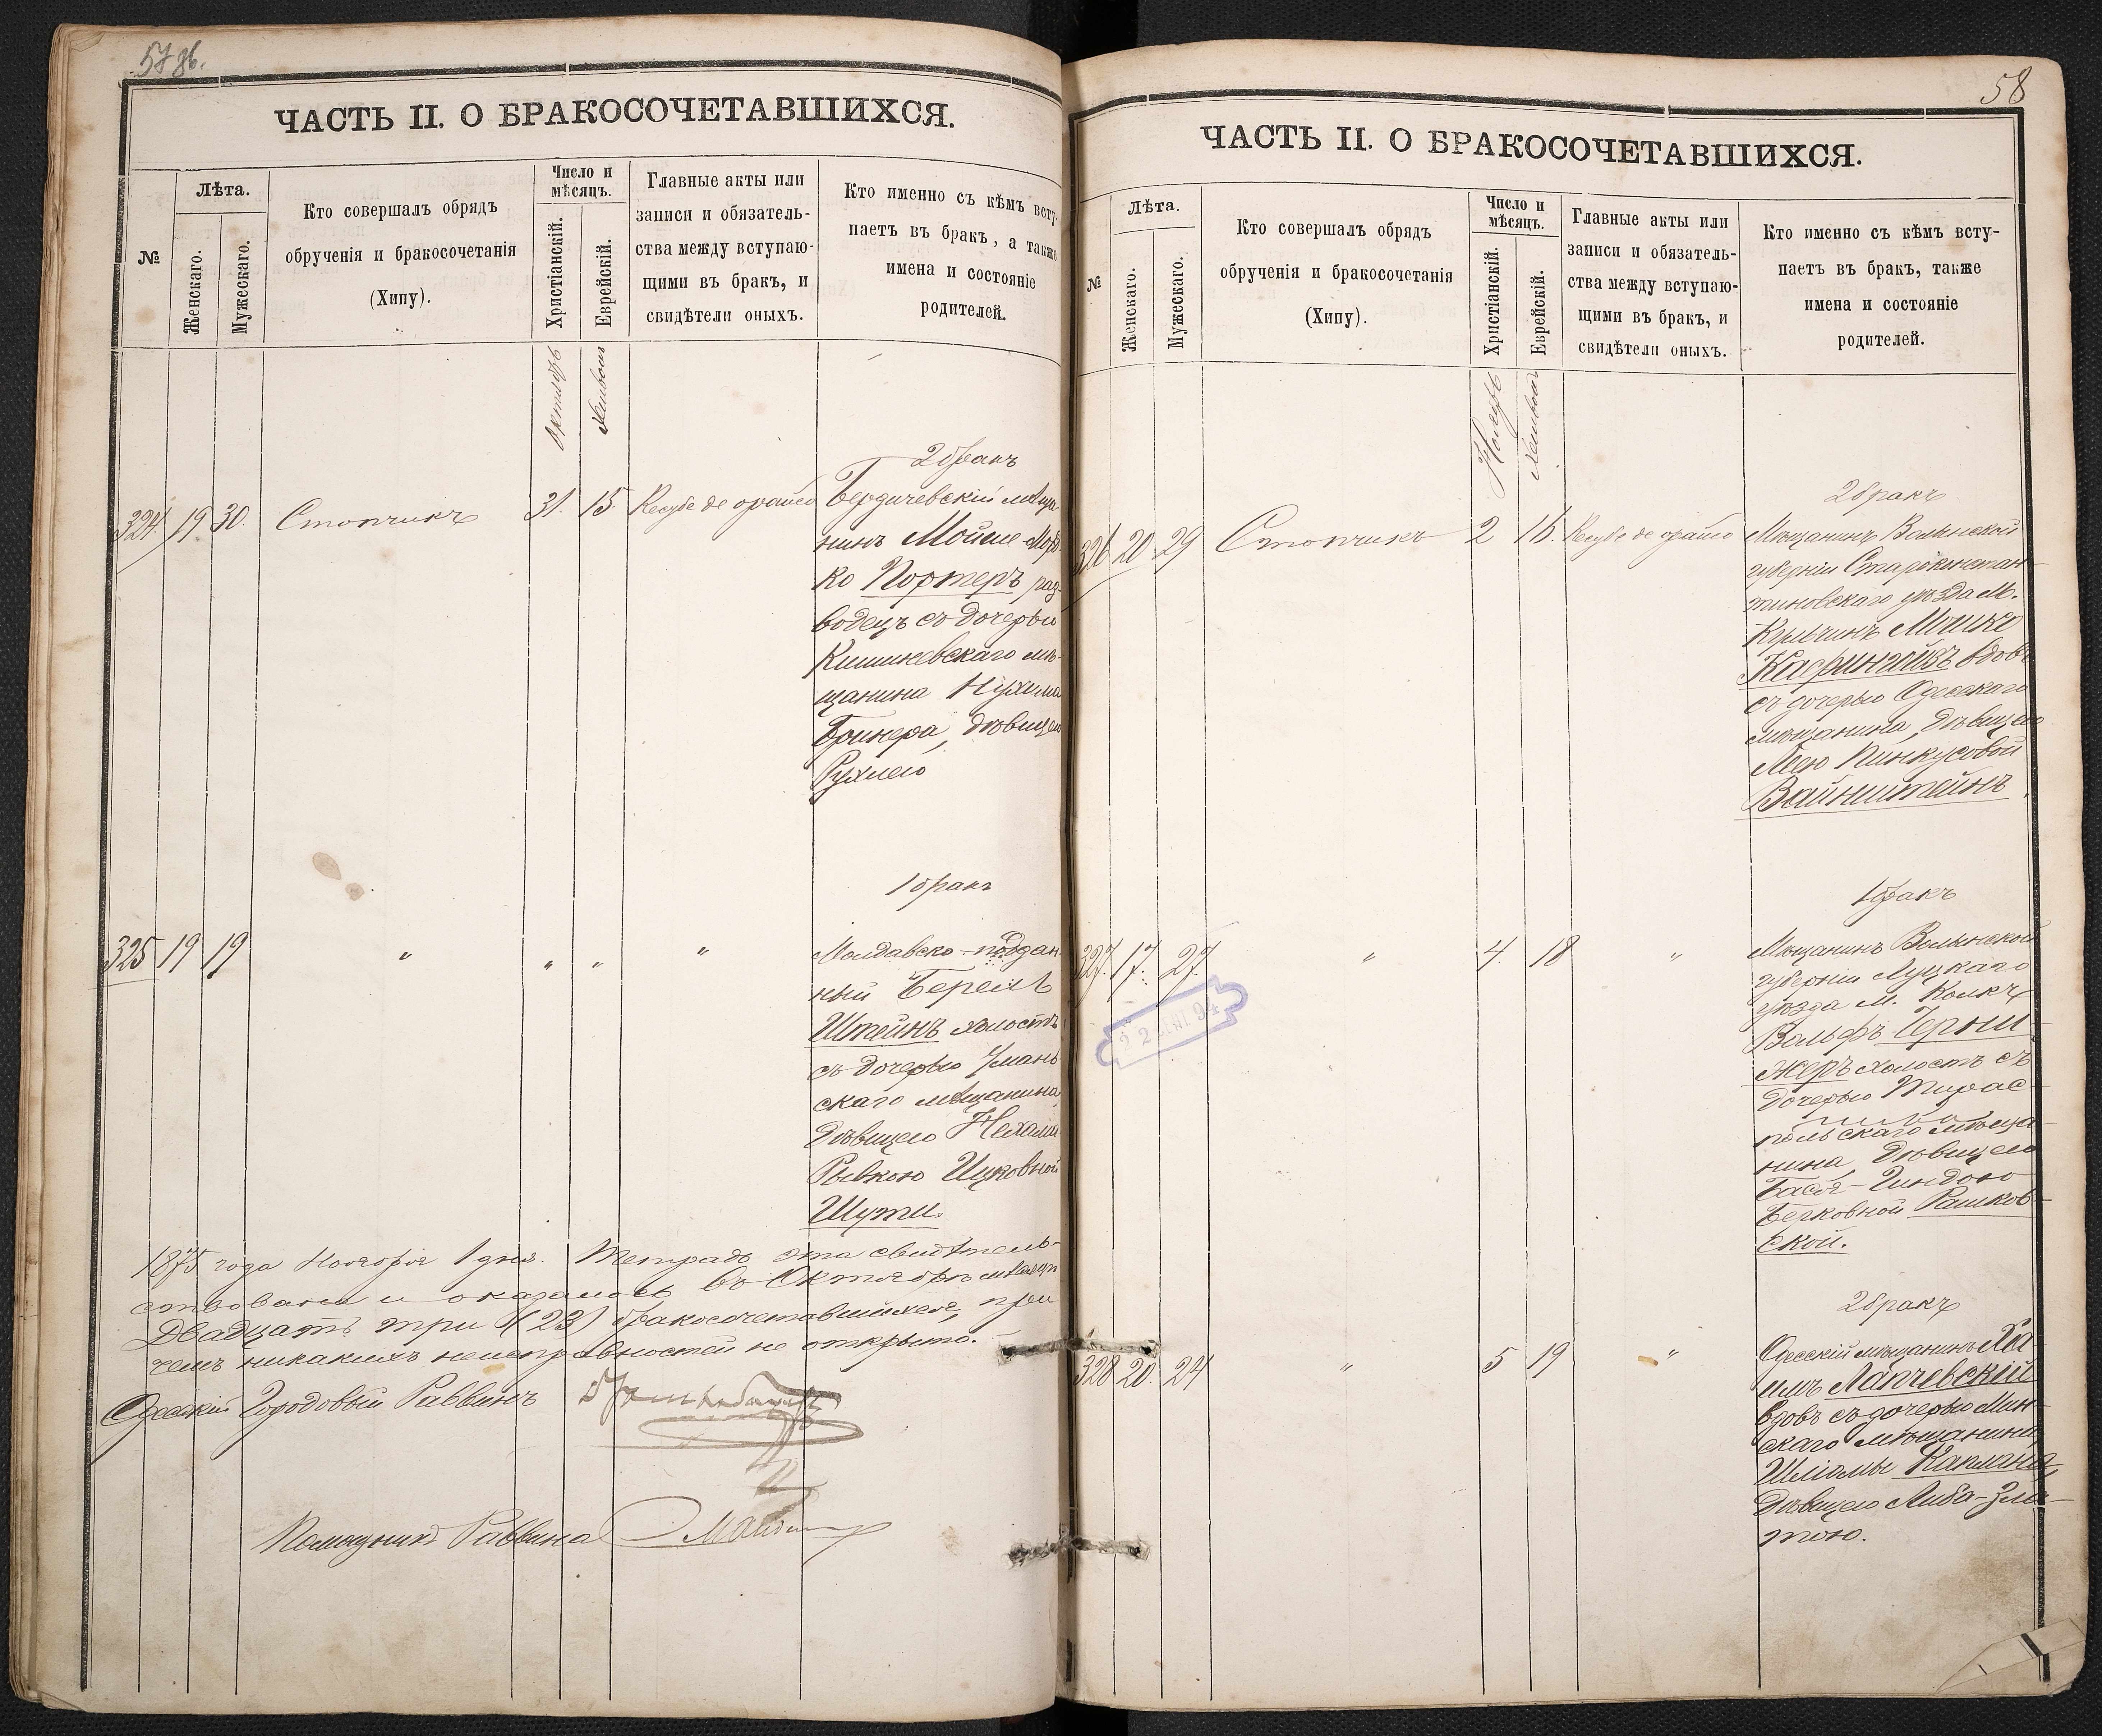 57 об.
ЧАСТЬ II. О БРАКОСОЧЕТАВШИХСЯ.
№
Лѣта.
Женскаго.
Мужескаго.
Кто совершалъ обрядъ
обрученія и бракосочетанія
(Хипу).
Число и
мѣсяцъ.
Христіанскій.
Еврейскій.
Главные акты или
записи и обязатель-
ства между вступаю-
щими въ бракъ, и
свидѣтели оныхъ.
Кто именно съ кѣмъ всту-
паетъ въ бракъ, а также
имена и состояніе
родителей.
Октябрь
Хешвонъ
2 бракъ
324. 19 30. Стопчикъ 31. 15 Кесубе де орайсо Бердичевскій мѣща-
нинъ Мойше-Мор
ко Портеръ раз-
водецъ съ дочерью
Кишиневскаго мѣ-
щанина Нухима
Бринера, дѣвицею
Рухлею
1 бракъ
325 19 19 " " " " Молдавско-поддан-
ный Берель
Штейнъ холостъ
съ дочерью Уман-
скаго мѣщанина,
дѣвицею Нехама-
Рывкою Ицковной
Шути.
1875 года Ноября 1 дня. Тетрадь эта свидѣтель-
ствована и оказалось въ Октябрѣ мѣсяцѣ
двадцать три (23) бракосочетавшихся, при
чемъ никакихъ неисправностей не открыто.
Одесскій Городовый Раввинъ
Помощникъ Раввина
58
ЧАСТЬ II. О БРАКОСОЧЕТАВШИХСЯ.
№
Лѣта.
Женскаго.
Мужескаго.
Кто совершалъ обрядъ
обрученія и бракосочетанія
(Хипу).
Число и
мѣсяцъ.
Христіанскій.
Еврейскій.
Главные акты или
записи и обязатель-
ства между вступаю-
щими въ бракъ, и
свидѣтели оныхъ.
Кто именно съ кѣмъ всту-
паетъ въ бракъ, также
имена и состояніе
родителей.
Ноябрь
Хешвонъ
2 бракъ
326 20 29 Стопчикъ 2 16. Кесубе де орайсо Мѣщанинъ Волынской
губерніи Старокинстан-
тиновскаго уѣзда М.
Кульчинъ Мошко
вдовъ
съ дочерью Одесскаго
мѣщанина, дѣвицею
Леею Пинкусовой
Вайнштейнъ.
1 бракъ
327. 17. 27. " 4. 18 " Мѣщанинъ Волынской
губерніи Луцкаго
уѣзда м. Колкъ
Вольфъ Черни-
жеръ холостъ съ
дочерью Тирас-
польскаго мѣща-
нина, дѣвицею
Бася-Гиндою
Берковной Рашков-
ской.
2 бракъ
328 20. 24 " 5 19 " Одесскій мѣщанинъ Ха
имъ Лапчевскій
вдовъ съ дочерью Мин-
скаго мѣщанина
Шліомы Каплана,
дѣвицею Либа-Зла-
тою.